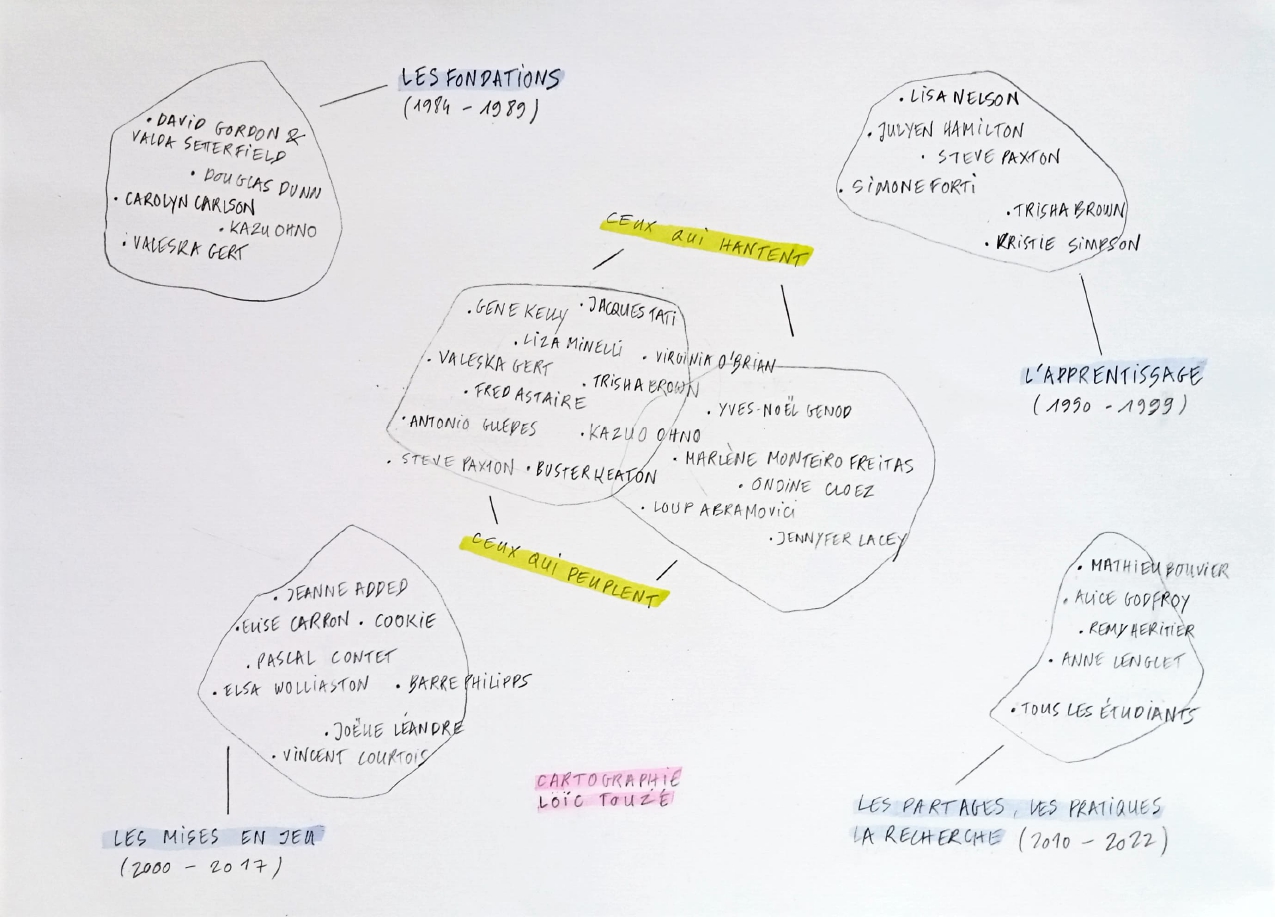 LES FONDATIONS
(1984 - 1989)
• DAVID GORDON &
VALDA SETTERFIELD
• DOUGLAS DUNN
• CAROLYN CARLSON
• KAZU OHNO
• VALESKA GERT
• LISA NELSON
• JULYEN HAMILTON
• STEVE PAXTON
• SIMONE FORTI
• TRISHA BROWN
• KRISTIE SIMPSON
L'APPRENTISSAGE
(1990 - 1999)
CEUX QUI HANTENT
• GENE KELLY • JACQUES TATI
• LIZA MINELLI
• VALESKA GERT • VIRGINIA O'BRIAN
• FRED ASTAIRE • TRISHA BROWN
• ANTONIO GUÉPES • KAZUO OHNO
• STEVE PAXTON • BUSTER KEATON
• YVES-NOËL GENOD
• MARLÈNE MONTEIRO FREITAS
• ONDINE CLOEZ
• LOUP ABRAMOVICI
• JENNYFER LACEY
CEUX QUI PEUPLENT
• JEANNE ADDED
• ELISE CARRON • COOKIE
• PASCAL CONTET
• ELSA WOLLIASTON • BARRE PHILIPPS
• JOËLLE LÉANDRE
• VINCENT COURTOIS
LES MISES EN JEU
(2000 - 2017)
• MATHIEU BOUVIER
• ALICE GODFROY
• REMY HERITIER
• ANNE LENGLET
• TOUS LES ÉTUDIANTS
LES PARTAGES, LES PRATIQUES
LA RECHERCHE (2010 - 2022)
CARTOGRAPHIE
LOÏC TOUZÉ